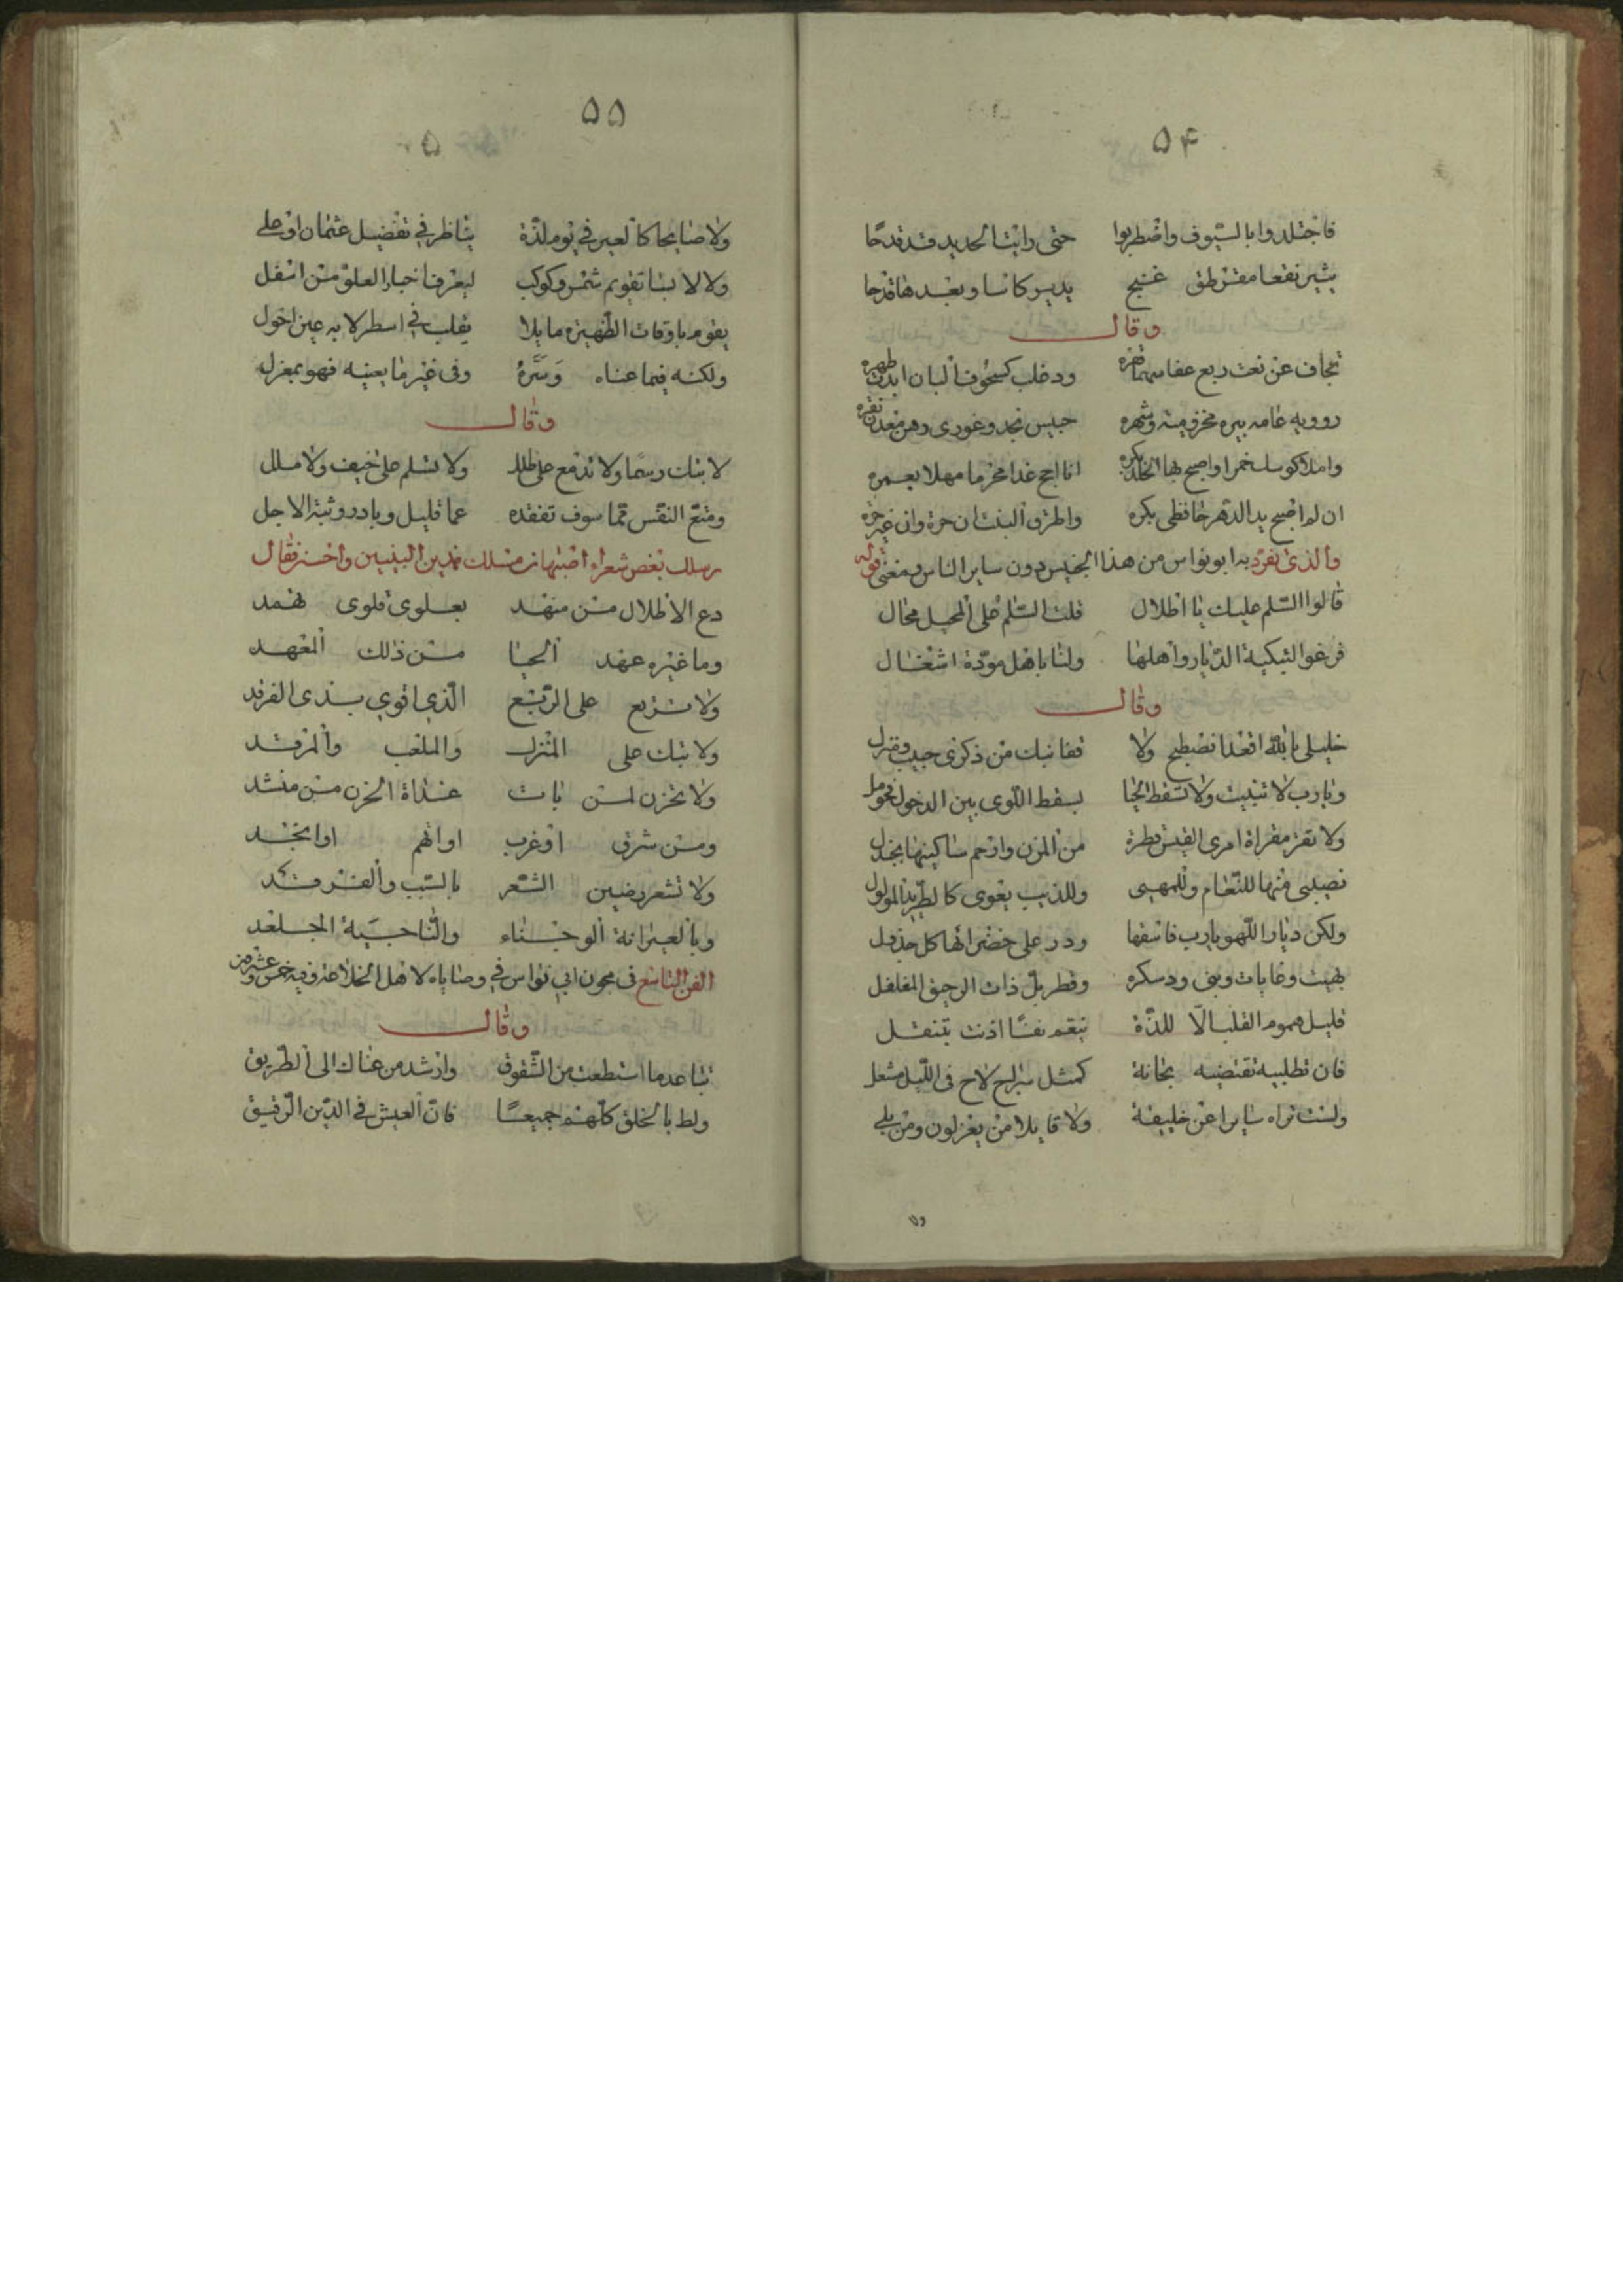 ۵۴
فاجتلدوا بالسيوف واضطربوا حتى رايت الحديد قد قدحا
يثير نقعا مقرطق غنج يدير كاسا وبعدها قدحا
وقال
تجاف عن نعت ربع عفا
حبيس نجد وغورى
انا احج غدا محرما مهلا بعمره
ان لم اصبح يد الدهر حافظى بكره واطرق
والذى تفرد به ابو نواس من هذا الجنس دون ساير الناس بمعنى قوله
قالوا السلم عليك يا اطلال قلت السلم على المحيل محال
فرغوا لتبكية الديار واهلها ولنا باهل مودة اشغال
وقال
خليلى بالله اقعدا نصطبح ولا قفا نبك من ذكرى حبيب ومنزل
ويا رب لا تنبت ولا تسقط الحيا بسقط اللوى بين الدخول فحومل
ولا تقر مقراة امرى القيس قطرة من المزن وارحم ساكنيها بجندل
نصيبى منها للنعام وللمهى وللذيب يعوى كالطريد المولول
ولكن ديار اللهو يا رب فاسقها ودر على خضرائها كل جدول
بهيت وغايات وبنى ودسكره وقطربل ذات الرحيق المفلفل
قليل هموم القلب الا للذة ينعم نفسا اذنت بتنقل
فان تطلبيه تقتضيه بحانة كمثل سراج لاح فى الليل مشعل
ولست تراه سايرا عن خليفة ولا قايلا من يعزلون ومن يلى
ولا
۵۵
ولا صايحا كالعير فى يوم لذة يناظر فى تفضيل عثمان او على
ولا لابسا تقويم شمس وكوكب ليعرف اخبار العلو من اسفل
يقوم باوقات الظهيرة مايلا يقلب فى اسطرلابه عين احول
ولكنه فيما عناه وسره وفى غير ما يعنيه فهو بمعزل
وقال
لا تبك رسما ولا تدمع على طلل ولا تسلم على خيف ولا ملل
ومتع النفس مما سوف تفقده عما قليل وبادر وثبة الاجل
وسلك بعض شعراء اصبهان مسلك هذين البيتين واحسن فقال
دع الاطلال من منهد بعلوى فلوى ثهمد
وما غيره عهد الحيا من ذلك المعهد
ولا تربع على الربع الذى اقوى بذى الفرقد
ولا تبك على المنزل والملعب والمرقد
ولا تحزن لمن بات غداة الحزن من منشد
ومن شرق او غرب او اتهم او انجد
ولا تشعر رضيين الشعر بالسبب والفدفد
وبالعيرانة الوجناء والناجية الجلعد
الفن التاسع فى مجون ابى نواس فى وصاياه لاهل الخلاعة وفيه
وقال
تباعد ما استطعت من الشقوق وارشد من عناك الى الطريق
ولط بالخلق كلهم جميعا فان العيش فى الدين الرقيق